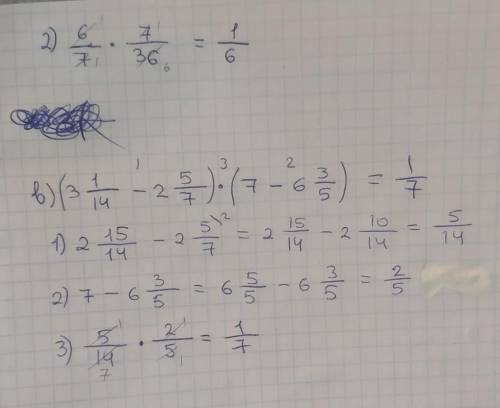 2) 6/7 · 7/36 = 1/6
в) (3 1/14 − 2 5/7) · (7 − 6 3/5) = 1/7
1) 2 15/14 − 2 5/7 = 2 15/14 − 2 10/14 = 5/14
2) 7 − 6 3/5 = 6 5/5 − 6 3/5 = 2/5
3) 5/14 · 2/5 = 1/7